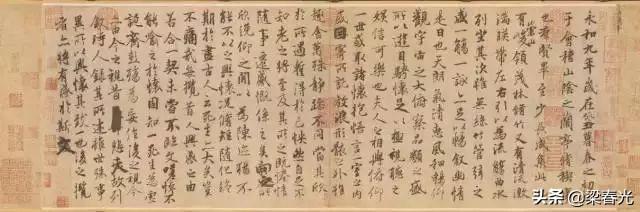 永和九年歲在癸丑暮春之初會
于會稽山陰之蘭亭脩禊事
也群賢畢至少長咸集此地
有崇山峻領茂林脩竹又有清流激
湍暎帶左右引以為流觴曲水
列坐其次雖無絲竹管弦之
盛一觴一詠亦足以暢敘幽情
是日也天朗氣清惠風和暢仰
觀宇宙之大俯察品類之盛
所以遊目騁懷足以極視聽之
娛信可樂也夫人之相與俯仰
一世或取諸懷抱悟言一室之內
或因寄所託放浪形骸之外雖
趣舍萬殊靜躁不同當其欣
於所遇暫得於己怏然自足不
知老之將至及其所之既惓情
隨事遷感慨係之矣向之所
欣俛仰之間以為陳迹猶不
能不以之興懷況脩短隨化終
期於盡古人云死生亦大矣豈
不痛哉每攬昔人興感之由
若合一契未嘗不臨文嗟悼不
能喻之於懷固知一死生為虛
誕齊彭殤為妄作後之視今
亦由今之視昔悲夫故列
敘時人錄其所述雖世殊事
異所以興懷其致一也後之攬
者亦將有感於斯文
头条 @梁春光